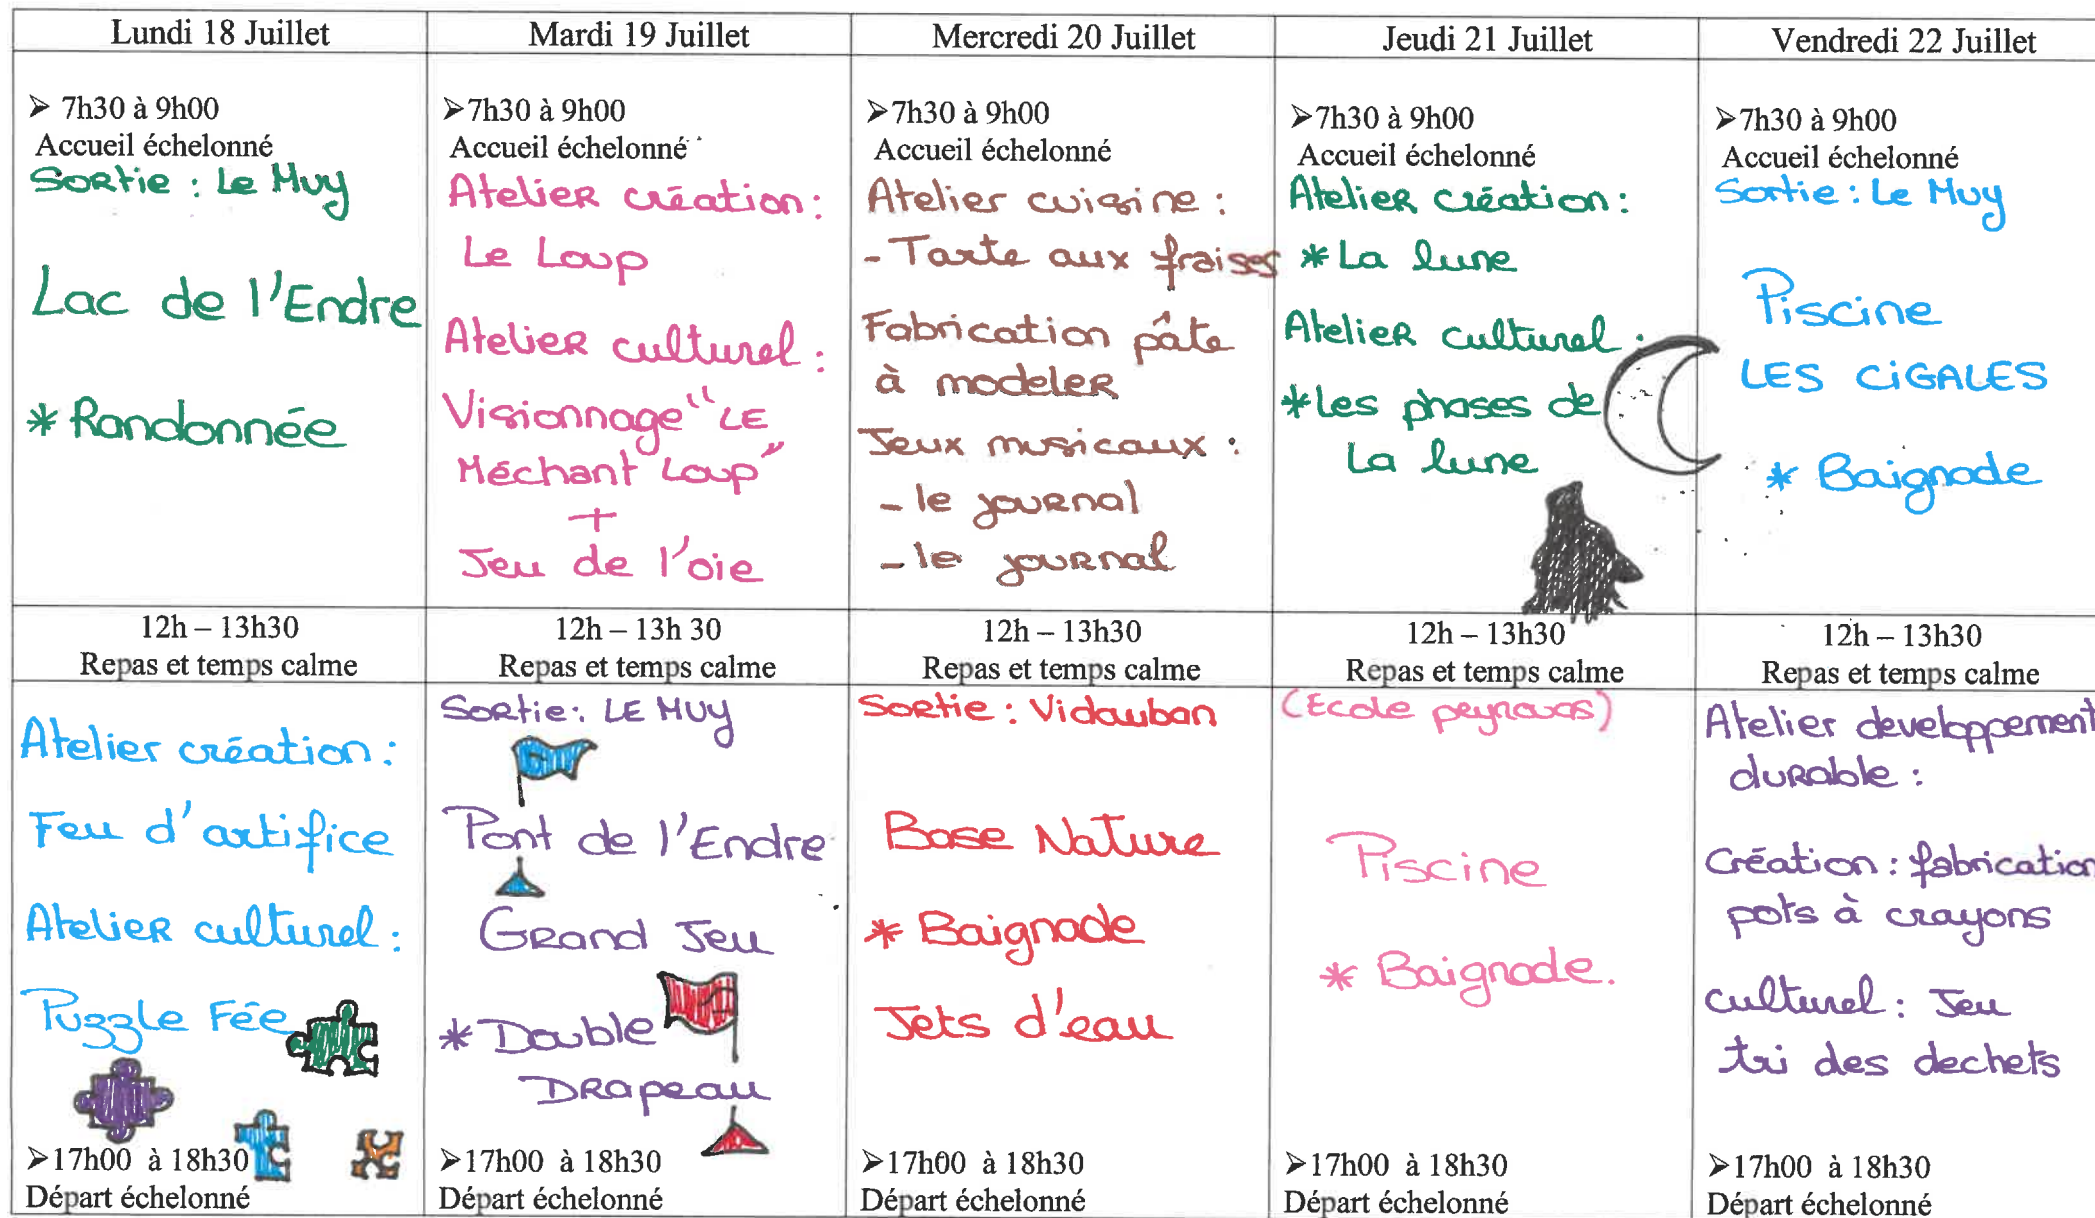 Lundi 18 Juillet
Mardi 19 Juillet
Mercredi 20 Juillet
Jeudi 21 Juillet
Vendredi 22 Juillet
➤ 7h30 à 9h00
Accueil échelonné
Sortie : Le Muy
Lac de l'Endre
* Randonnée
➤7h30 à 9h00
Accueil échelonné
Atelier création :
Le Loup
Atelier culturel :
Visionnage "LE
Méchant Loup"
+
Jeu de l'oie
➤7h30 à 9h00
Accueil échelonné
Atelier cuisine :
- Tarte aux fraises
Fabrication pâte
à modeler
Jeux musicaux :
- le journal
- le journal
➤7h30 à 9h00
Accueil échelonné
Atelier création :
* La lune
Atelier culturel :
* Les phases de
La lune
➤7h30 à 9h00
Accueil échelonné
Sortie : Le Muy
Piscine
LES CIGALES
* Baignade
12h – 13h30
Repas et temps calme
12h – 13h 30
Repas et temps calme
12h – 13h30
Repas et temps calme
12h – 13h30
Repas et temps calme
12h – 13h30
Repas et temps calme
Atelier création :
Feu d'artifice
Atelier culturel :
Puzzle Fée
➤17h00 à 18h30
Départ échelonné
Sortie : LE MUY
Pont de l'Endre
Grand Jeu
* Double
Drapeau
➤17h00 à 18h30
Départ échelonné
Sortie : Vidauban
Base Nature
* Baignade
Jets d'eau
➤17h00 à 18h30
Départ échelonné
(Ecole peyrouas)
Piscine
* Baignade.
➤17h00 à 18h30
Départ échelonné
Atelier developpement
durable :
Création : fabrication
pots à crayons
culturel : Jeu
tri des dechets
➤17h00 à 18h30
Départ échelonné